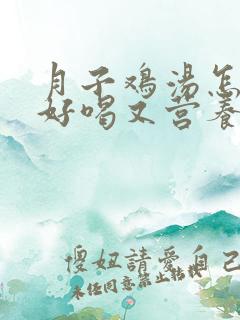 月子鸡汤怎
好喝又营养
傻妞請愛自己
未经同意禁止转载